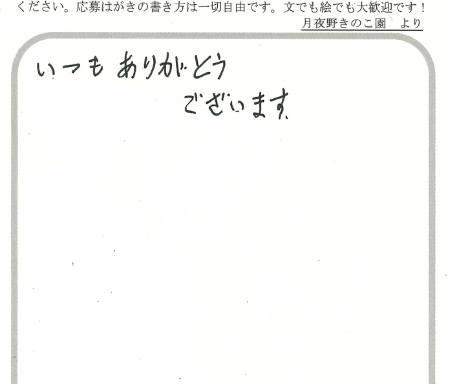 ください。応募はがきの書き方は一切自由です。文でも絵でも大歓迎です！
月夜野きのこ園　より
いつも ありがとう
ございます.